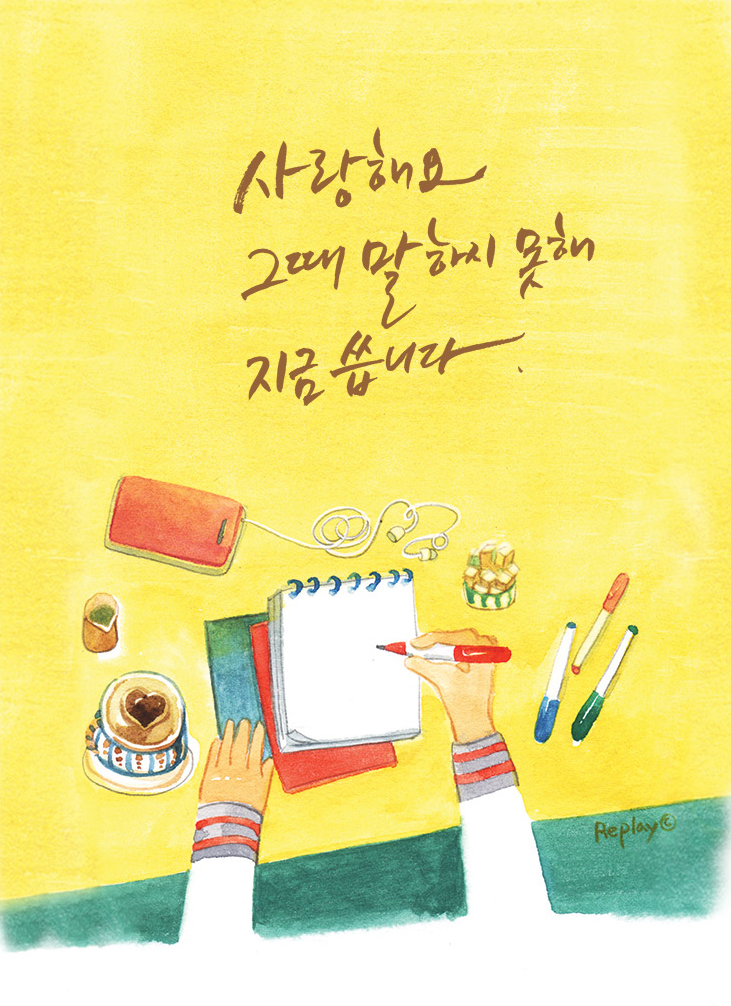 사랑해요
그때 말하지 못해
지금 씁니다.
Replay©